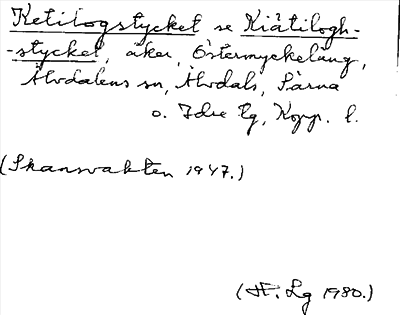 Ketilogstycket se Kiätilogh-
-stycket, åker, Östermyckeläng,
Älvdalens sn, Älvdals, Särna
o. Idre tg, Kopp. l.
(Skansvakten 1947.)
(H. Lg 1980.)